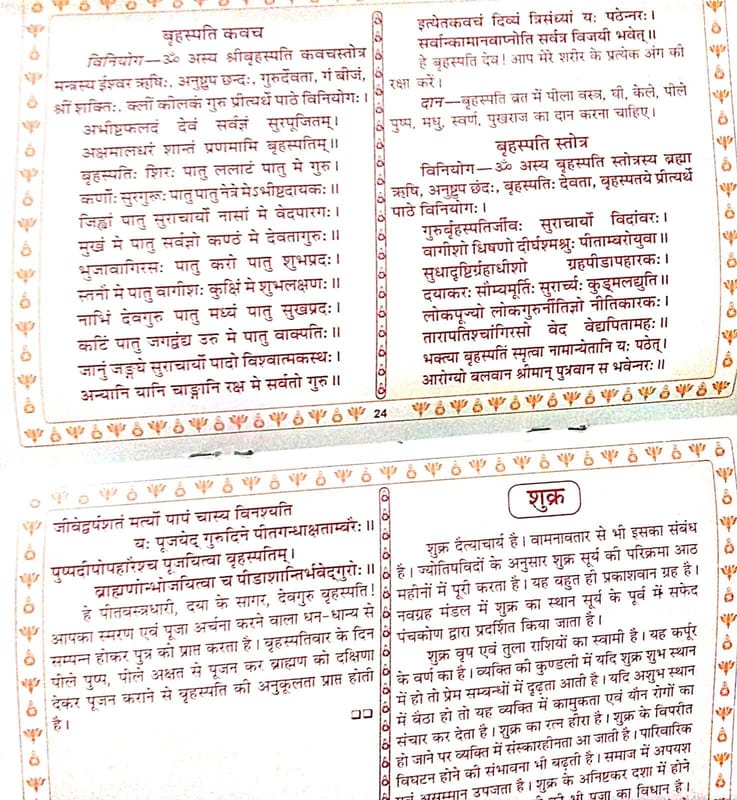 बृहस्पति कवच
विनियोग—ॐ अस्य श्रीबृहस्पति कवचस्तोत्र
मन्त्रस्य ईश्वर ऋषिः, अनुष्टुप छन्दः, गुरुर्देवता, गं बीजं,
श्रीं शक्तिः, क्लीं कीलकं गुरु प्रीत्यर्थे पाठे विनियोगः।
अभीष्टफलदं देवं सर्वज्ञं सुरपूजितम्।
अक्षमालधरं शान्तं प्रणमामि बृहस्पतिम्॥
बृहस्पतिः शिरः पातु ललाटं पातु मे गुरु।
कर्णोः सुरगुरूः पातु पातु नेत्रे मेऽभीष्टदायकः॥
जिह्वां पातु सुराचार्यो नासां मे वेदपारगः।
मुखं मे पातु सर्वज्ञो कण्ठं मे देवतागुरुः॥
भुजावागिरसः पातु करो पातु शुभप्रदः।
स्तनौ मे पातु वागीशः कुक्षिं मे शुभलक्षणः॥
नाभिं देवगुरु पातु मध्यं पातु सुखप्रदः।
कटिं पातु जगद्वंद्य उरु मे पातु वाक्पतिः॥
जानुं जङ्घ्ये सुराचार्यो पादो विश्वात्मकस्थः।
अन्यानि यानि चाङ्गानि रक्ष मे सर्वतो गुरु॥
इत्येतकवचं दिव्यं त्रिसंध्यां यः पठेन्नरः।
सर्वान्कामानवाप्नोति सर्वत्र विजयी भवेत्॥
हे बृहस्पति देव! आप मेरे शरीर के प्रत्येक अंग की
रक्षा करें।
दान—बृहस्पति व्रत में पीला वस्त्र, घी, केले, पीले
पुष्प, मधु, स्वर्ण, पुखराज का दान करना चाहिए।
बृहस्पति स्तोत्र
विनियोग—ॐ अस्य बृहस्पति स्तोत्रस्य ब्रह्मा
ऋषि, अनुष्टुप छंदः, बृहस्पतिः देवता, बृहस्पतये प्रीत्यर्थे
पाठे विनियोगः।
गुरुर्बृहस्पतिर्जीवः सुराचार्यो विदांवरः।
वागीशो धिषणो दीर्घश्मश्रुः पीताम्बरोयुवा॥
सुधादृष्टिर्ग्रहाधीशो ग्रहपीडापहारकः।
दयाकरः सौम्यमूर्तिः सुरार्च्यः कुड्मलद्युति॥
लोकपूज्यो लोकगुरुनीतिज्ञो नीतिकारकः।
तारापतिश्चांगिरसो वेद वेद्यपितामहः॥
भक्त्या बृहस्पतिं स्मृत्वा नामान्येतानि यः पठेत्।
आरोग्यो बलवान श्रीमान् पुत्रवान स भवेन्नरः॥
24
जीवेद्वर्षशतं मर्त्यो पापं चास्य विनश्यति
यः पूजयेद् गुरुदिने पीतगन्धाक्षताम्वरैः॥
पुष्पदीपोपहारैश्च पूजयित्वा वृहस्पतिम्।
ब्राह्मणोन्भोजयित्वा च पीडाशान्तिर्भवेद्गुरोः॥
हे पीतवस्त्रधारी, दया के सागर, देवगुरु बृहस्पति!
आपका स्मरण एवं पूजा अर्चना करने वाला धन-धान्य से
सम्पन्न होकर पुत्र की प्राप्त करता है। बृहस्पतिवार के दिन
पीले पुष्प, पीले अक्षत से पूजन कर ब्राह्मण को दक्षिणा
देकर पूजन कराने से बृहस्पति की अनुकूलता प्राप्त होती
है।
शुक्र
शुक्र दैत्याचार्य है। वामनावतार से भी इसका संबंध
है। ज्योतिषविदों के अनुसार शुक्र सूर्य की परिक्रमा आठ
महीनों में पूरी करता है। यह बहुत ही प्रकाशवान ग्रह है।
नवग्रह मंडल में शुक्र का स्थान सूर्य के पूर्व में सफेद
पंचकोण द्वारा प्रदर्शित किया जाता है।
शुक्र वृष एवं तुला राशियों का स्वामी है। यह कर्पूर
के वर्ण का है। व्यक्ति की कुण्डली में यदि शुक्र शुभ स्थान
में हो तो प्रेम सम्बन्धों में दृढ़ता आती है। यदि अशुभ स्थान
में बैठा हो तो यह व्यक्ति में कामुकता एवं यौन रोगों का
संचार कर देता है। शुक्र का रत्न हीरा है। शुक्र के विपरीत
हो जाने पर व्यक्ति में संस्कारहीनता आ जाती है। पारिवारिक
विघटन होने की संभावना भी बढ़ती है। समाज में अपयश
एवं असम्मान उपजता है। शुक्र के अनिष्टकर दशा में होने
की भी पूजा का विधान है।